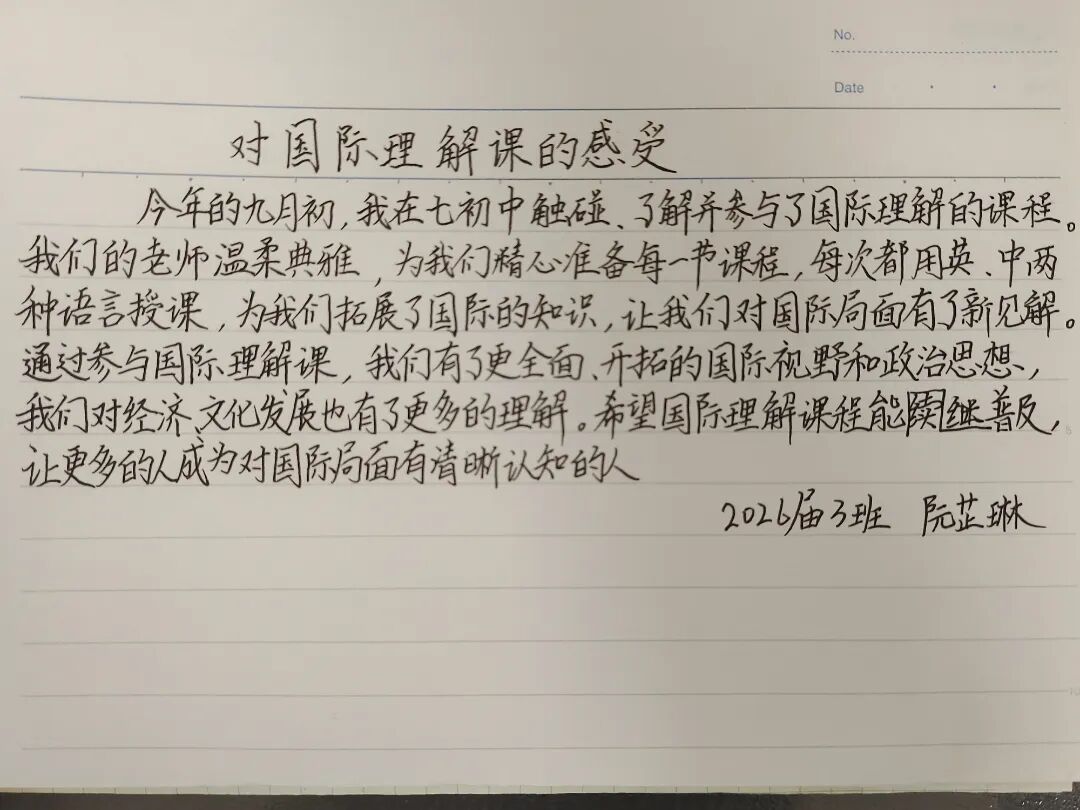 No.
Date
对国际理解课的感受
今年的九月初,我在七初中触碰、了解并参与了国际理解的课程。
我们的老师温柔典雅,为我们精心准备每一节课程,每次都用英、中两
种语言授课,为我们拓展了国际的知识,让我们对国际局面有了新见解。
通过参与国际理解课,我们有了更全面、开拓的国际视野和政治思想,
我们对经济、文化发展也有了更多的理解。希望国际理解课程能继普及,
让更多的人成为对国际局面有清晰认知的人
2026届3班 阮芷琳